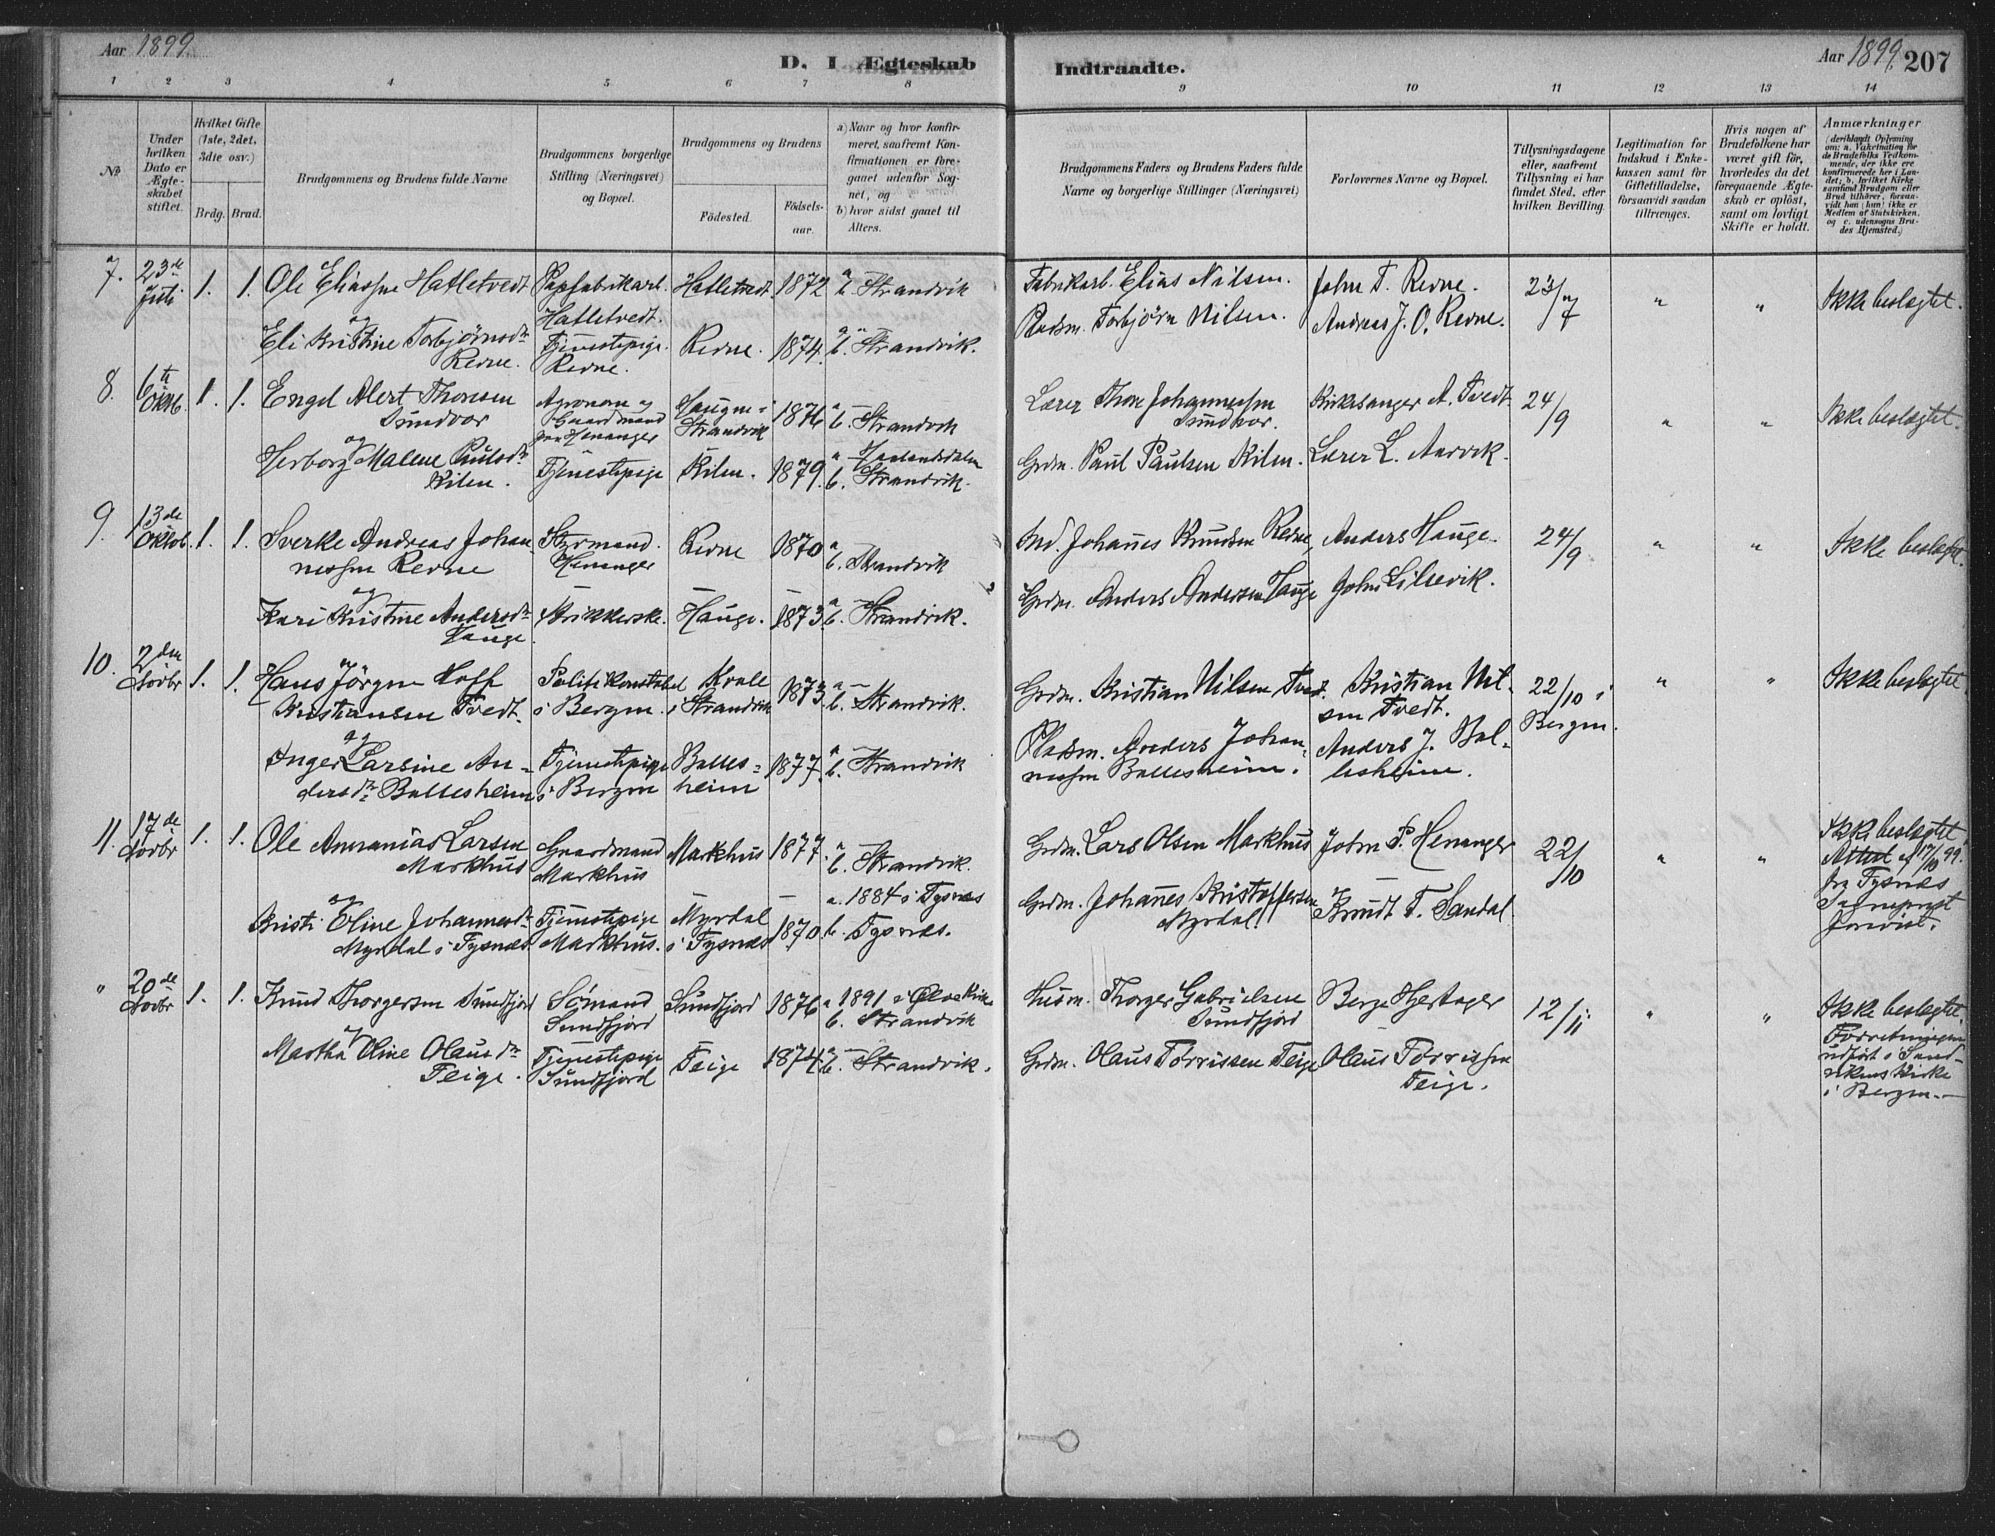 Aar 1899.
D. I Ægteskab
Indtraadte.
Aar 1899. 207
1 2 3 4 5 6 7 8 9 10 11 12 13 14
No
Under hvilken Dato er Ægteskabet stiftet.
Hvilket Gifte (1ste, 2det, 3die osv.)
Brdg. Brud.
Brudgommens og Brudens fulde Navne
Brudgommens borgerlige Stilling (Næringsvei) og Bopæl.
Brudgommens og Brudens
Fødested.
Fødselsaar.
a) Naar og hvor konfirmeret, saafremt Konfirmationen er foregaaet udenfor Sognet, og
b) hvor sidst gaaet til Alters.
Brudgommens Faders og Brudens Faders fulde Navne og borgerlige Stillinger (Næringsvei)
Forlovernes Navne og Bopæl.
Tillysningsdagene eller, saafremt Tillysning ei har fundet Sted, efter hvilken Bevilling.
Legitimation for Indskud i Enkekassen samt for Giftetilladelse, forsaavidt saadan tiltrænges.
Hvis nogen af Brudefolkene har været gift før, hvorledes da det foregaaende Ægteskab er opløst, samt om lovligt Skifte er holdt.
Anmærkninger (deriblandt Oplysning om: a. Vaksination for de Brudefolks Vedkommende, der ikke ere konfirmerede her i Landet; b. hvilket Kirkesamfund Brudgom eller Brud tilhører, forsaavidt han (hun) ikke er Medlem af Statskirken, og c. udensogns Brudes Hjemsted.)
7. 23de Juli 1. 1. Ole Eliassen Hatletvedt Papfabrikarb. Hatletvedt. Hatletvedt. 1872 a — b. Strandvik Fabrikarb. Elias Nilsen. John T. Revne. 23/7 " " Ikke beslægtet.
og
Eli Kristine Torbjørnsdtr Revne. Tjenestepige. Revne. Revne. 1874. a — b. Strandvik. Pladsm. Torbjörn Nilsen. Andreas J. O. Revne.
8. 6te Oktb. 1. 1. Engel Alert Thoresen Sundvor Agronom og Gaardmand Henanger Haugen i Strandvik 1876 a — b. Strandvik Lærer Thore Johannessen Sundvor. Kirkesanger A. Tvedt 24/9 " " Ikke beslægtet.
og
Herborg Malene Paulsdtr Kilen. Tjenestepige Kilen. 1879. a Haalandsdalen b. Strandvik. Grdm. Paul Paulsen Kilen. Lærer L. Aarvik.
9. 13de Oktob. 1. 1. Sverke Andreas Johannessen Revne Styrmand. Henanger Revne 1870 a — b. Strandvik Ind. Johannes Knudsen Revne, Anders Hauge. 24/9 " " Ikke beslægtet.
og
Kari Kristine Andersdtr Hauge. Strikkerske. Hauge. 1873. a — b. Strandvik. Grdm. Anders Andersen Hauge John Lilsevik.
10. 2den Novbr 1. 1. Hans Jörgen Hoff Kristiansen Tvedt. Politikonstabel i Bergen. Kvale i Strandvik 1873. a — b. Strandvik. Grdm. Kristian Nilsen Tvedt. Kristian Nilsen Tvedt. 22/10 i Bergen. " " Ikke beslægtet.
og
Inger Larsine Andersdtr Ballesheim Tjenestepige i Bergen Ballesheim 1877. a — b. Strandvik Pladsm. Anders Johannessen Ballesheim. Anders J. Ballesheim.
11. 17de Novbr 1. 1. Ole Ananias Larsen Markhus Gaardmand Markhus Markhus 1877. a — b. Strandvik. Grdm. Lars Olsen Markhus John P. Henanger 22/10 " " Ikke beslægtet. Attest af 17/10 99. fra Tysnæs Sognepræst forevist.
og
Kristi Oline Johannesdtr Myrdal i Tysnæs Tjenestepige Markhus. Myrdal i Tysnæs 1870. a. 1884 i Tysnæs b. Tysnæs. Grdm. Johannes Kristoffersen Myrdal. Knudt T. Sandal
" 20de Novbr 1. 1. Knud Thorgersen Sundfjord Sømand Sundfjord Sundfjord 1876 a 1891 i Kirke b. Strandvik Husm. Thorger Gabrielsen Sundfjord Berge Hjertager 12/11 " " Ikke beslægtet. Forretningen udført i Sandvikens Kirke i Bergen. —
og
Martha Oline Olausdtr Teige. Tjenestepige Sundfjord Teige 1874. a — b. Strandvik. Grdm. Olaus Torrissen Teige Olaus Torrissen Teige.